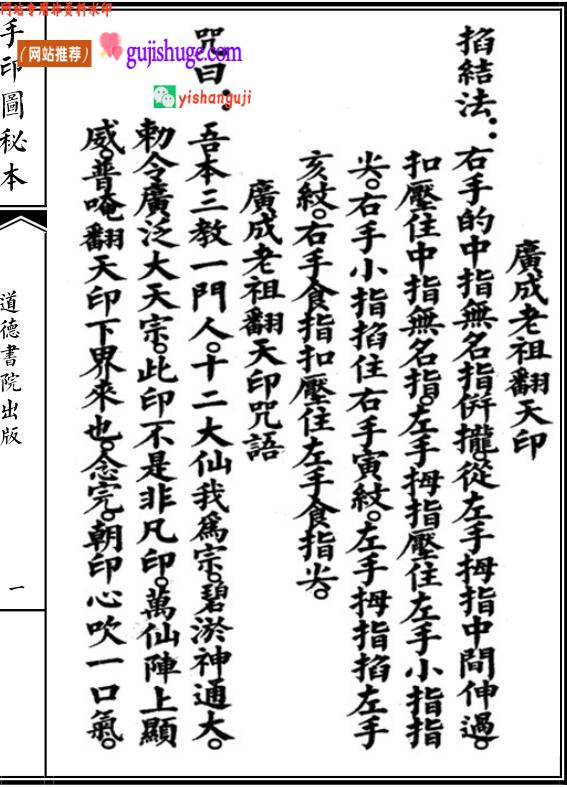 廣成老祖翻天印
掐結法：右手的中指無名指併攏。從左手拇指中間伸過。
扣壓住中指無名指。左手拇指壓住左手小指指
尖。右手小指掐住右手寅紋。左手拇指掐左手
亥紋。右手食指扣壓住左手食指尖。
廣成老祖翻天印咒語
咒曰：吾本三教一門人。十二大仙我爲宗。碧淤神通大。
勅令廣泛大天宗。此印不是非凡印。萬仙陣上顯
威。普唵翻天印下界來也。念完。朝印心吹一口氣。
手印圖秘本
道德書院出版
一
网站专用非资料水印
（网站推荐）
gujishuge.com
yishanguji